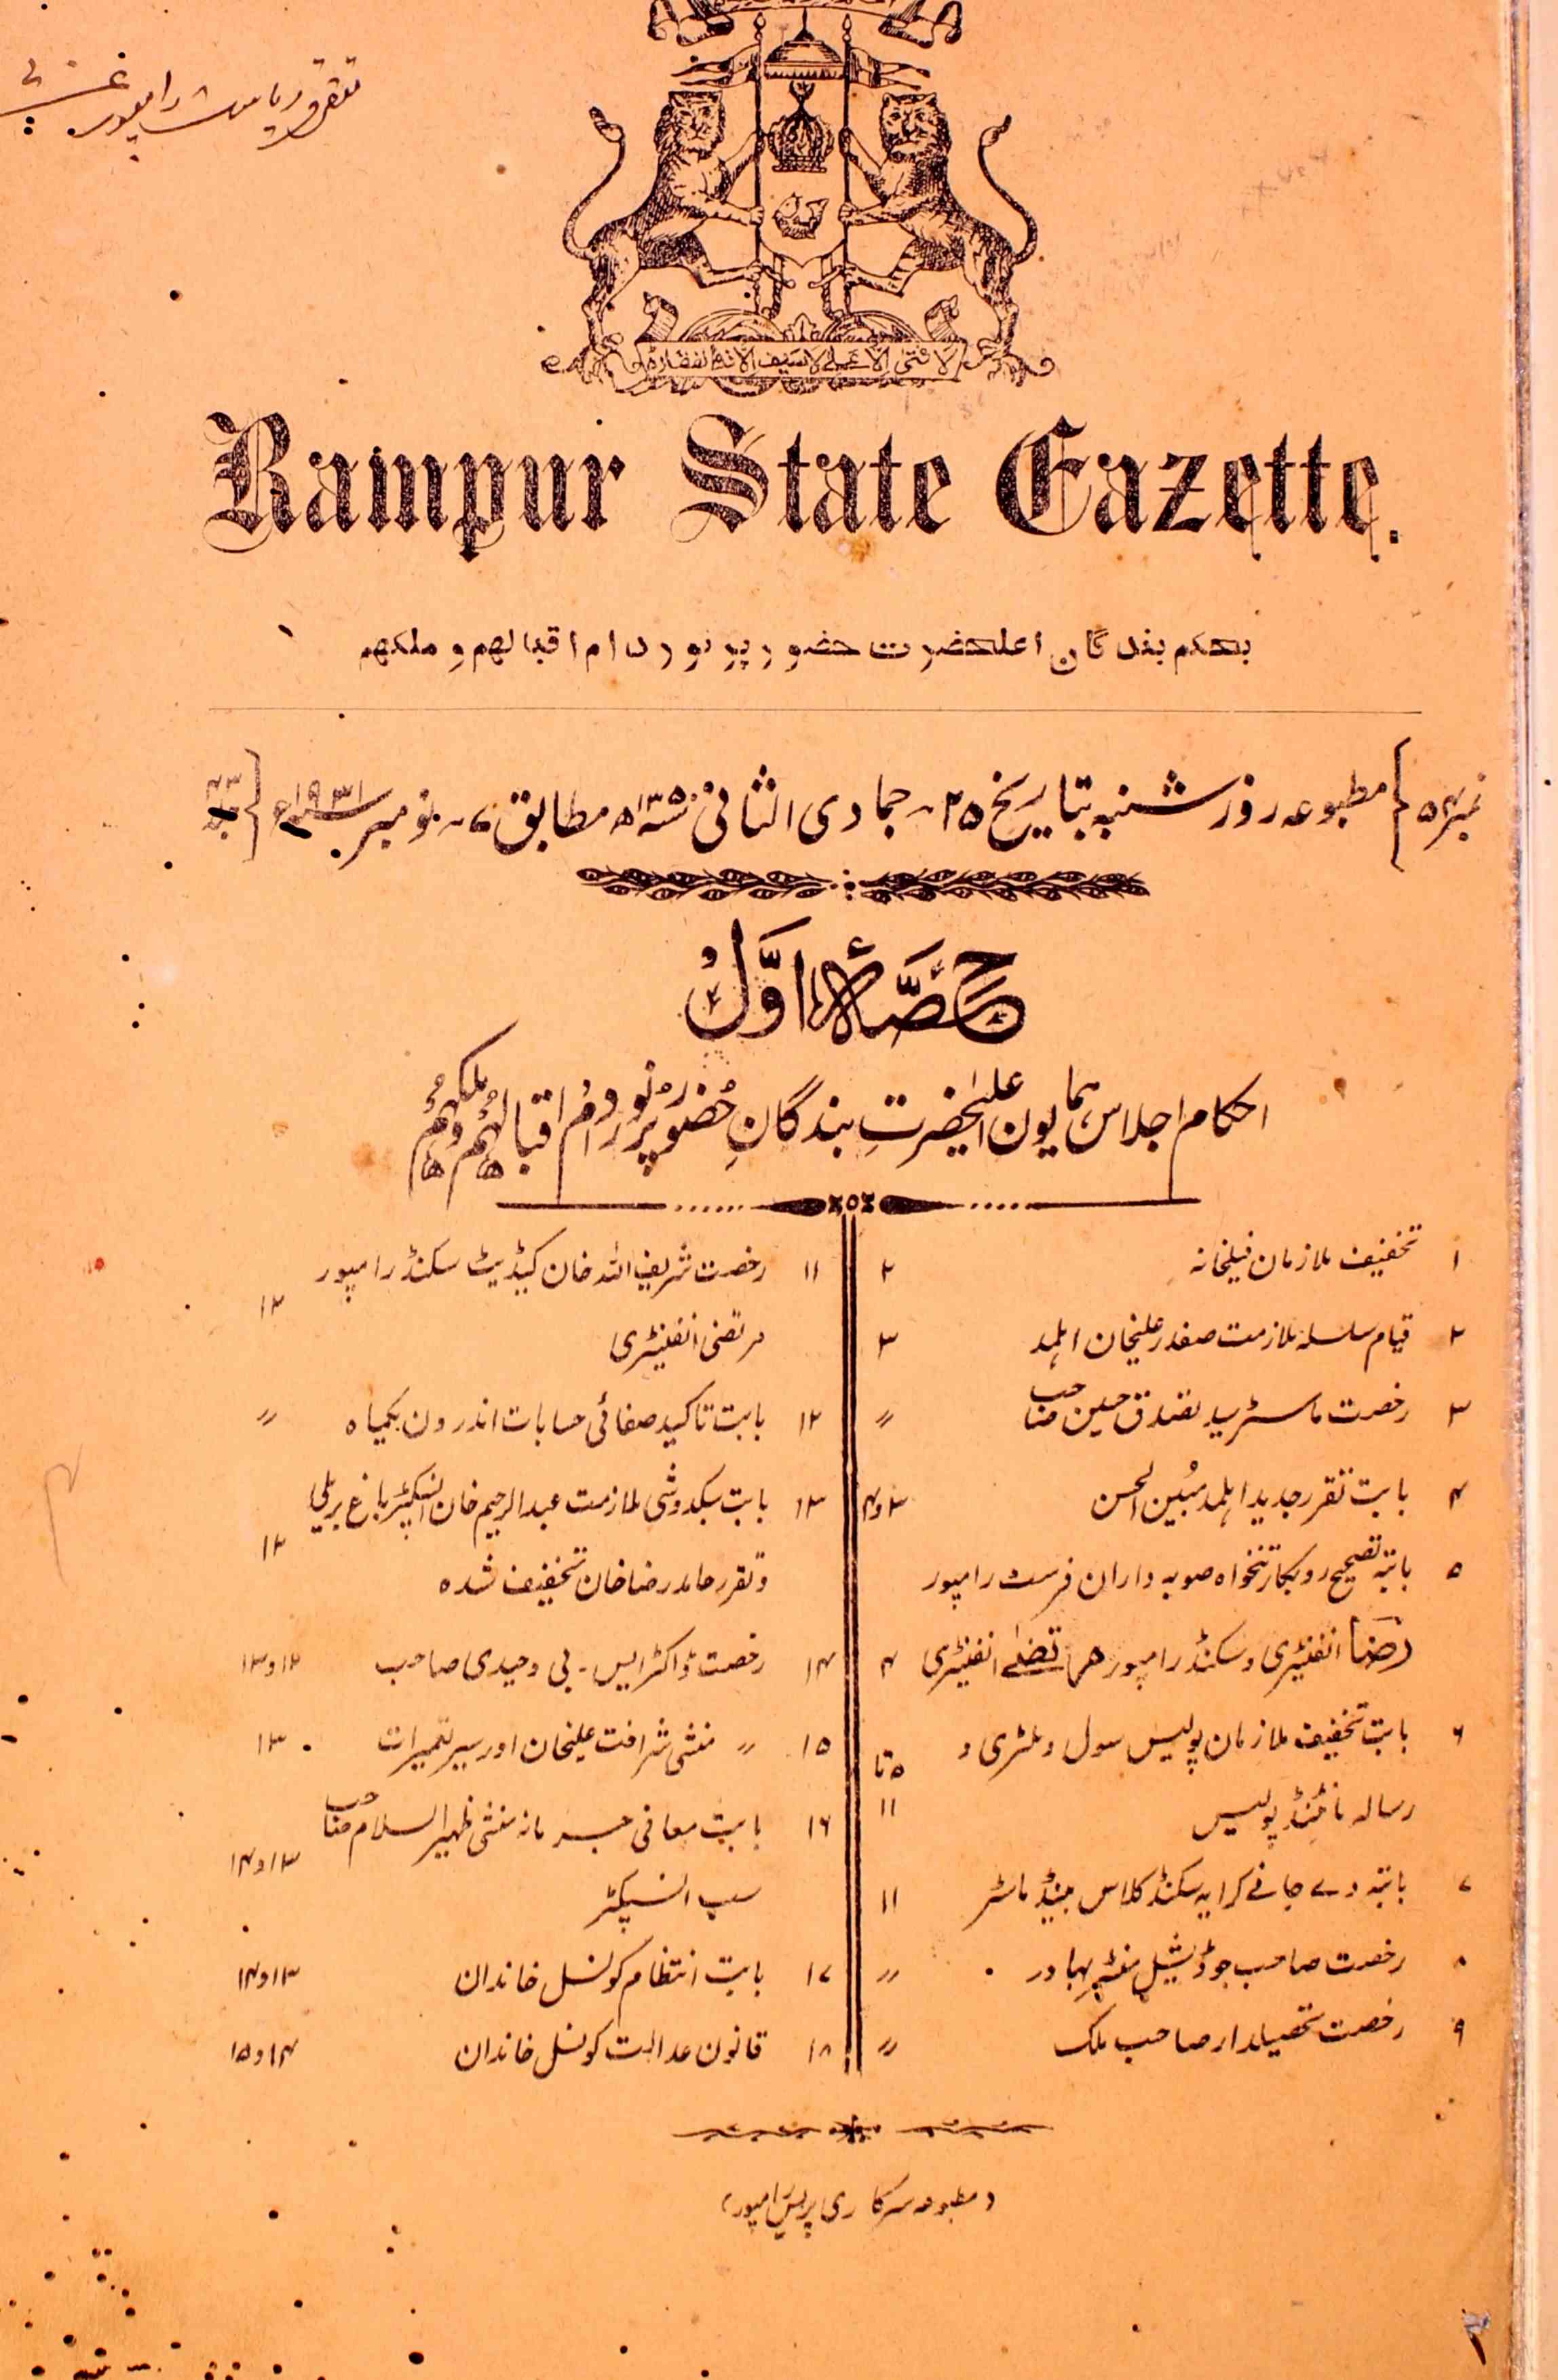 لا فتی الا علی لا سیف الا ذوالفقار
Rampur State Gazette.
بحکم بندگان اعلحضرت حضور پر نور دام اقبالهم و ملکهم
مطبوعہ روز شنبہ بتاریخ ۲۵ - جمادی الثانی ۱۳۵۰ھ مطابق ۷ - نومبر ۱۹۳۱ء
حصۂ اوّل
احکام اجلاس ہمایون اعلیٰحضرتِ بندگانِ حضور پر نور دام اقبالہم و ملکہم
۱ تخفیف ملازمان فیلخانہ ۲
۲ قیام سلسلہ ملازمت صفدر علیخان اہلمد ۳
۳ رخصت ماسٹر سید تصدق حسین صاحب 〃
۴ بابت تقرر جدید اہلمد مُبین الحسن ۳و۴
۵ بابتہ تصحیح روبکار تنخواہ صوبہ داران فرسٹ رامپور
رضا انفنٹیری و سکنڈ رامپور مرتضےٰ انفنٹیری ۴
۶ بابت تخفیف ملازمان پولیس سول و ملٹری و ۵ تا
رسالہ مائنٹڈ پولیس ۱۱
۷ بابتہ دے جانے کرایہ سکنڈ کلاس بینڈ ماسٹر ۱۱
۸ رخصت صاحب جوڈیشیل منسٹر بہادر 〃
۹ رخصت تحصیلدار صاحب ملک 〃
۱۱ رخصت شریف اللہ خان کیڈیٹ سکنڈ رامپور ۱۲
مرتضیٰ انفنٹیری
۱۲ بابت تاکید صفائی حسابات اندرون یکماہ 〃
۱۳ بابت سبکدوشی ملازمت عبدالرحیم خان انسپکٹر باغ بریلی ۱۲
و تقرر حامد رضا خان تخفیف شدہ
۱۴ رخصت ڈاکٹر ایس - بی وحیدی صاحب ۱۲و۱۳
۱۵ 〃 منشی شرافت علیخان اورسیر تعمیرات ۱۳
۱۶ بابت معافی جرمانہ منشی ظہیر السلام صاحب ۱۳و۱۴
سب انسپکٹر
۱۷ بابت انتظام کونسل خاندان ۱۳و۱۴
۱۸ قانون عدالت کونسل خاندان ۱۴و۱۵
(مطبوعہ سرکاری پریس رامپور)